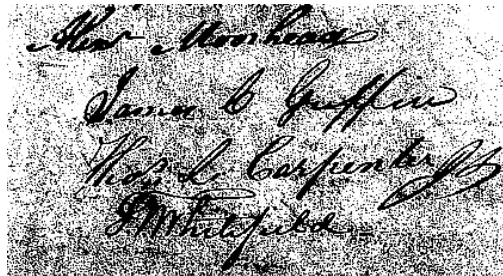 Alexr Moorhead
James C Griffin
Thos L. Carpenter
J M Whitfield